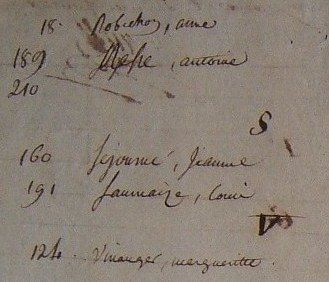 18. Robichon, anne
189 Messe, antoine
210
S
160 Sejourné, Jeanne
191 Saumaize, Louis
V
124. Vinanger, margueritte.